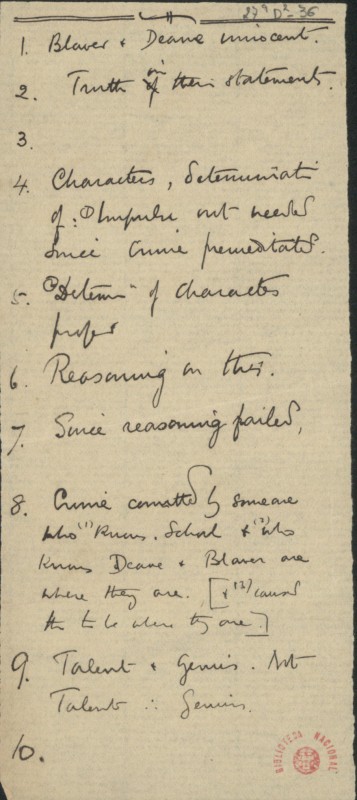 27⁴ D²-36
1. Blaver & Deane innocent.
2. Truth in their statements.
3.
4. Characters, determinati
of: ① Impulse not needed
since crime premeditated.
5. ② "Determn" of character
proper
6. Reasoning on this.
7. Since reasoning failed,
8. Crime committed by someone
who (1) knows School & (2) who
knows Deane & Blaver are
where they are. [& (3) caused
them to be where they are.]
9. Talent & Genius. Not
Talent ∴ Genius.
10.
BIBLIOTECA NACIONAL